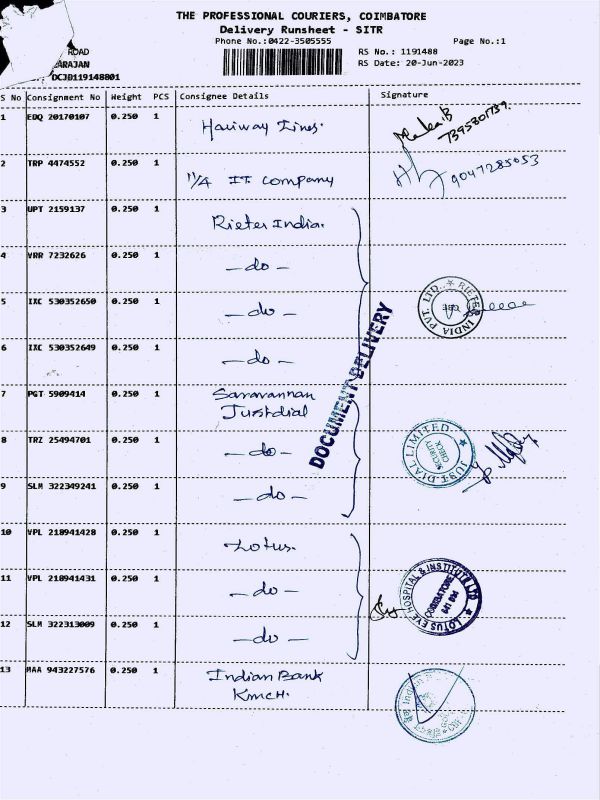 THE PROFESSIONAL COURIERS, COIMBATORE
Delivery Runsheet - SITR
Phone No.:0422-3505555 Page No.:1
ROAD RS No.: 1191488
ARAJAN RS Date: 20-Jun-2023
DCJB119148801
S No Consignment No Weight PCS Consignee Details Signature
1 EDQ 20170107 0.250 1 Hariway Lines. 7395801739.
2 TRP 4474552 0.250 1 11/4 IT Company 9047285053
3 UPT 2159137 0.250 1 Rieter India.
4 VRR 7232626 0.250 1 -do-
5 IXC 530352650 0.250 1 -do- RIETER INDIA PVT. LTD.
6 IXC 530352649 0.250 1 -do-
DOCUMENT DELIVERY
7 PGT 5909414 0.250 1 Saravannan
Justdial
8 TRZ 25494701 0.250 1 -do- JUST DIAL LIMITED SECURITY CHECK
9 SLM 322349241 0.250 1 -do-
10 VPL 218941428 0.250 1 Lotus.
11 VPL 218941431 0.250 1 -do- LOTUS EYE HOSPITAL & INSTITUTE LTD COIMBATORE 641 014
12 SLM 322313009 0.250 1 -do-
13 MAA 943227576 0.250 1 Indian Bank
KMCH. Indian